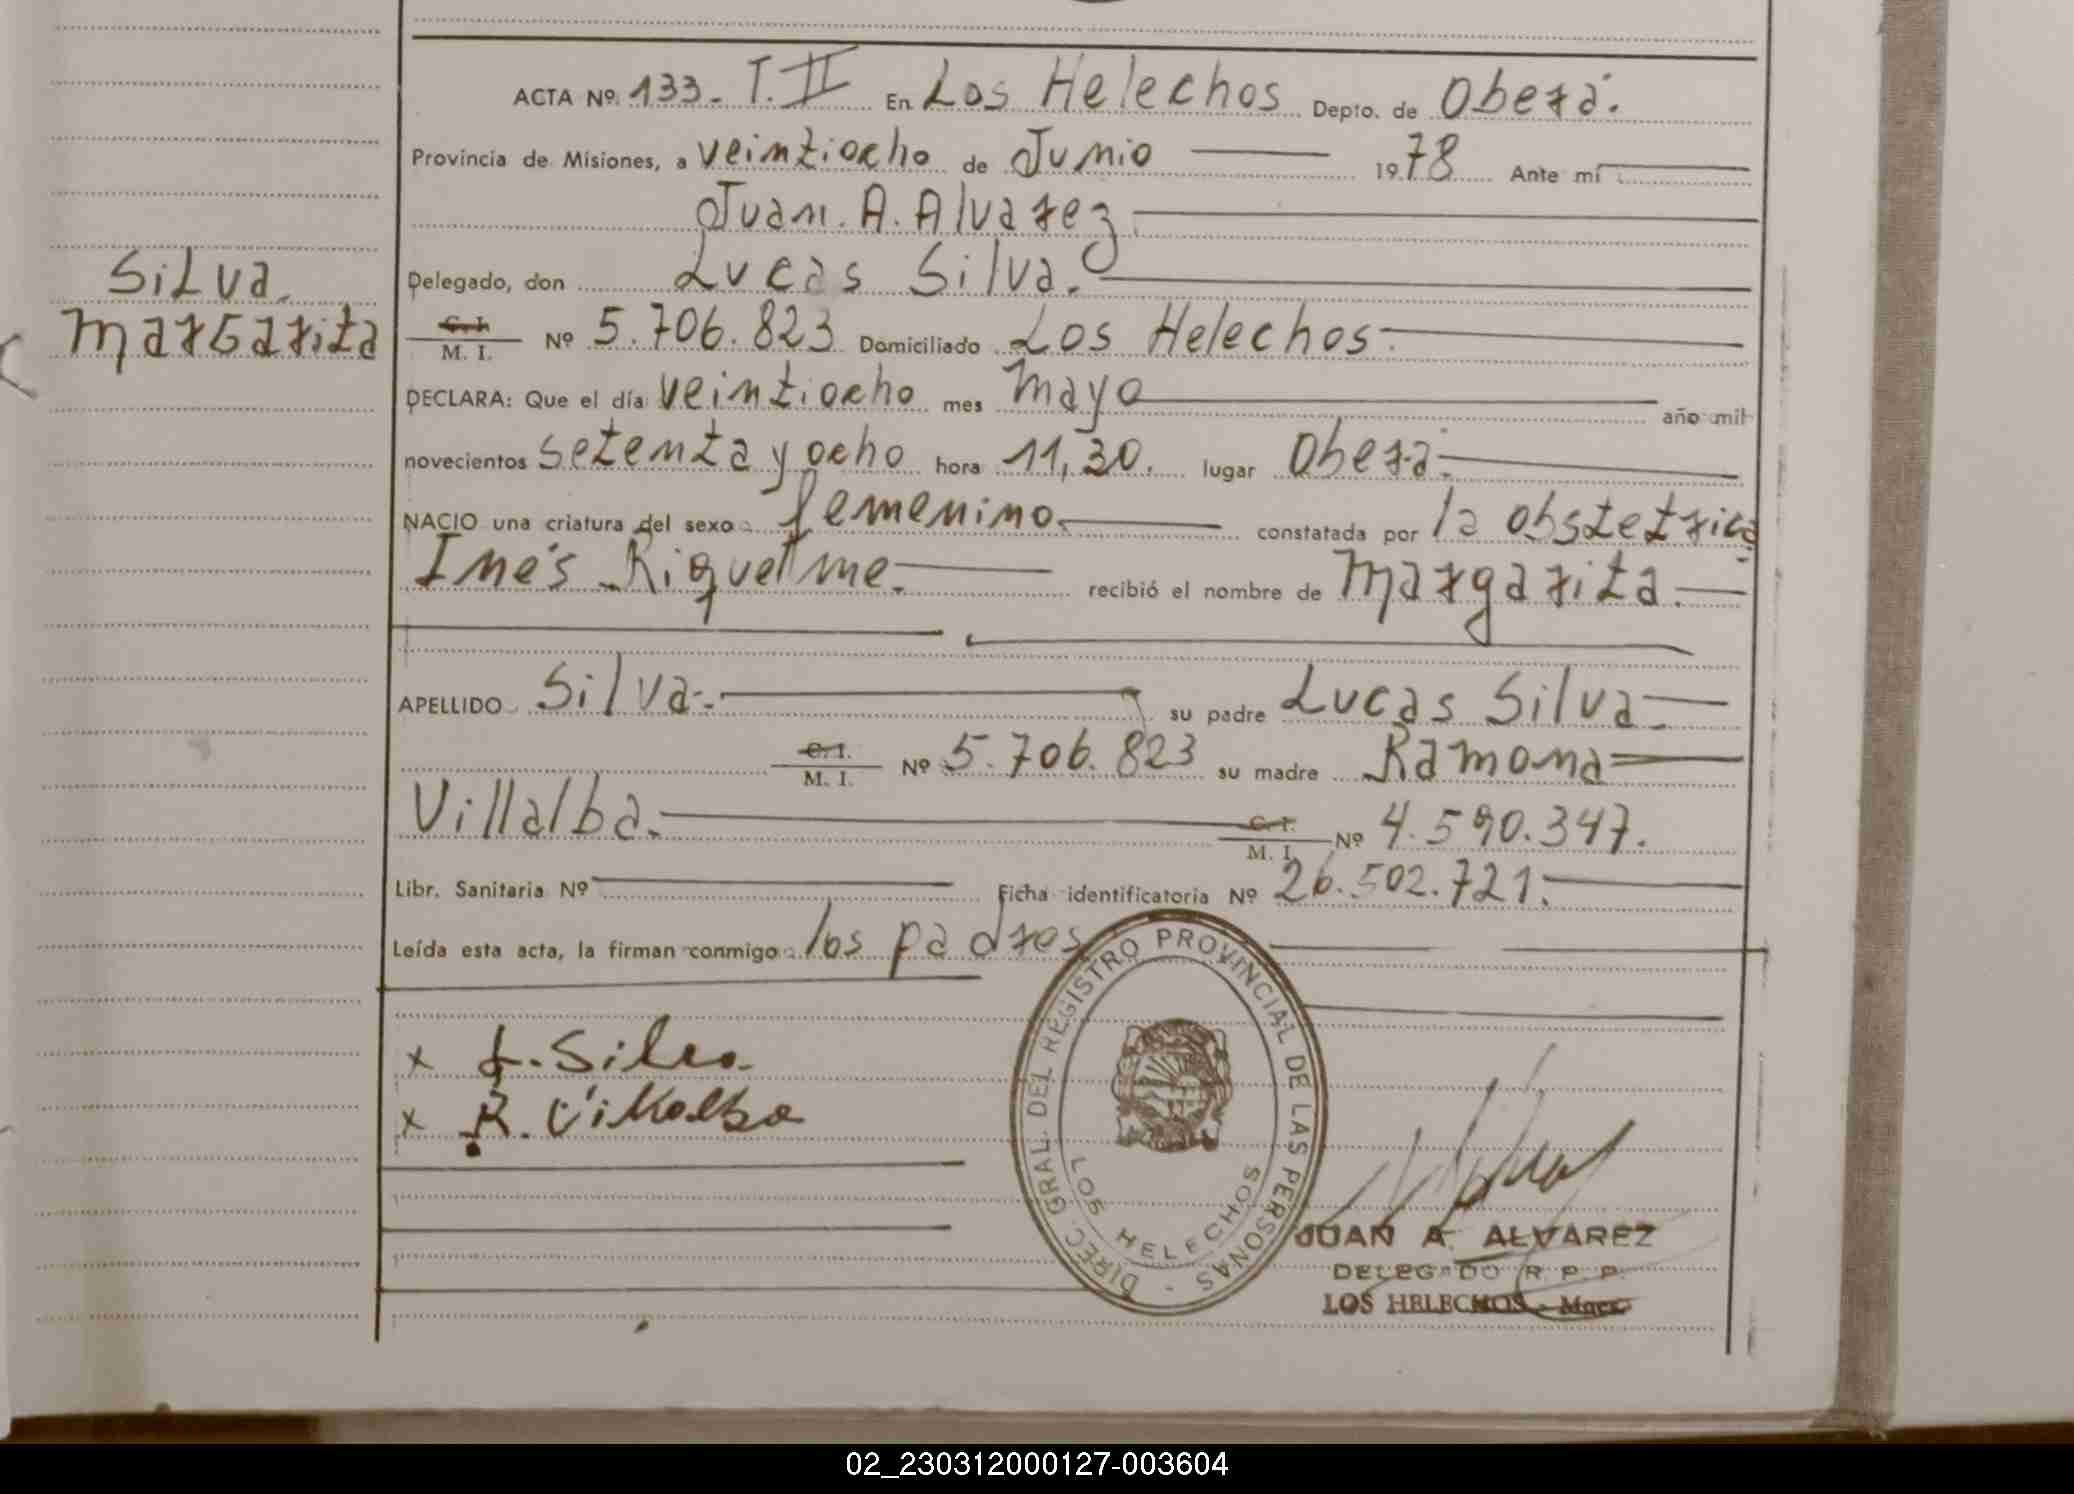 ACTA Nº 133. T. II En Los Helechos Depto. de Oberá.
Provincia de Misiones, a veintiocho de Junio 1978 Ante mí
Juan. A. Alvarez
Delegado, don Lucas Silva.
Silva
Margarita
C. I.
M. I. Nº 5.706.823 Domiciliado Los Helechos.
DECLARA: Que el día veintiocho mes Mayo año mil
novecientos setenta y ocho hora 11,30. lugar Oberá.
NACIO una criatura del sexo femenino constatada por la obstetrica
Inés Riquelme. recibió el nombre de Margarita.
APELLIDO Silva. su padre Lucas Silva
C. I.
M. I. Nº 5.706.823 su madre Ramona
Villalba. C. I.
M. I. Nº 4.590.347.
Libr. Sanitaria Nº Ficha identificatoria Nº 26.502.721.
Leída esta acta, la firman conmigo los padres
x L. Silva
x R. Villalba
DIREC. GRAL. DEL REGISTRO PROVINCIAL DE LAS PERSONAS -
LOS HELECHOS
JUAN A. ALVAREZ
DELEGADO R. P. P.
LOS HELECHOS - Mnes.
02_230312000127-003604